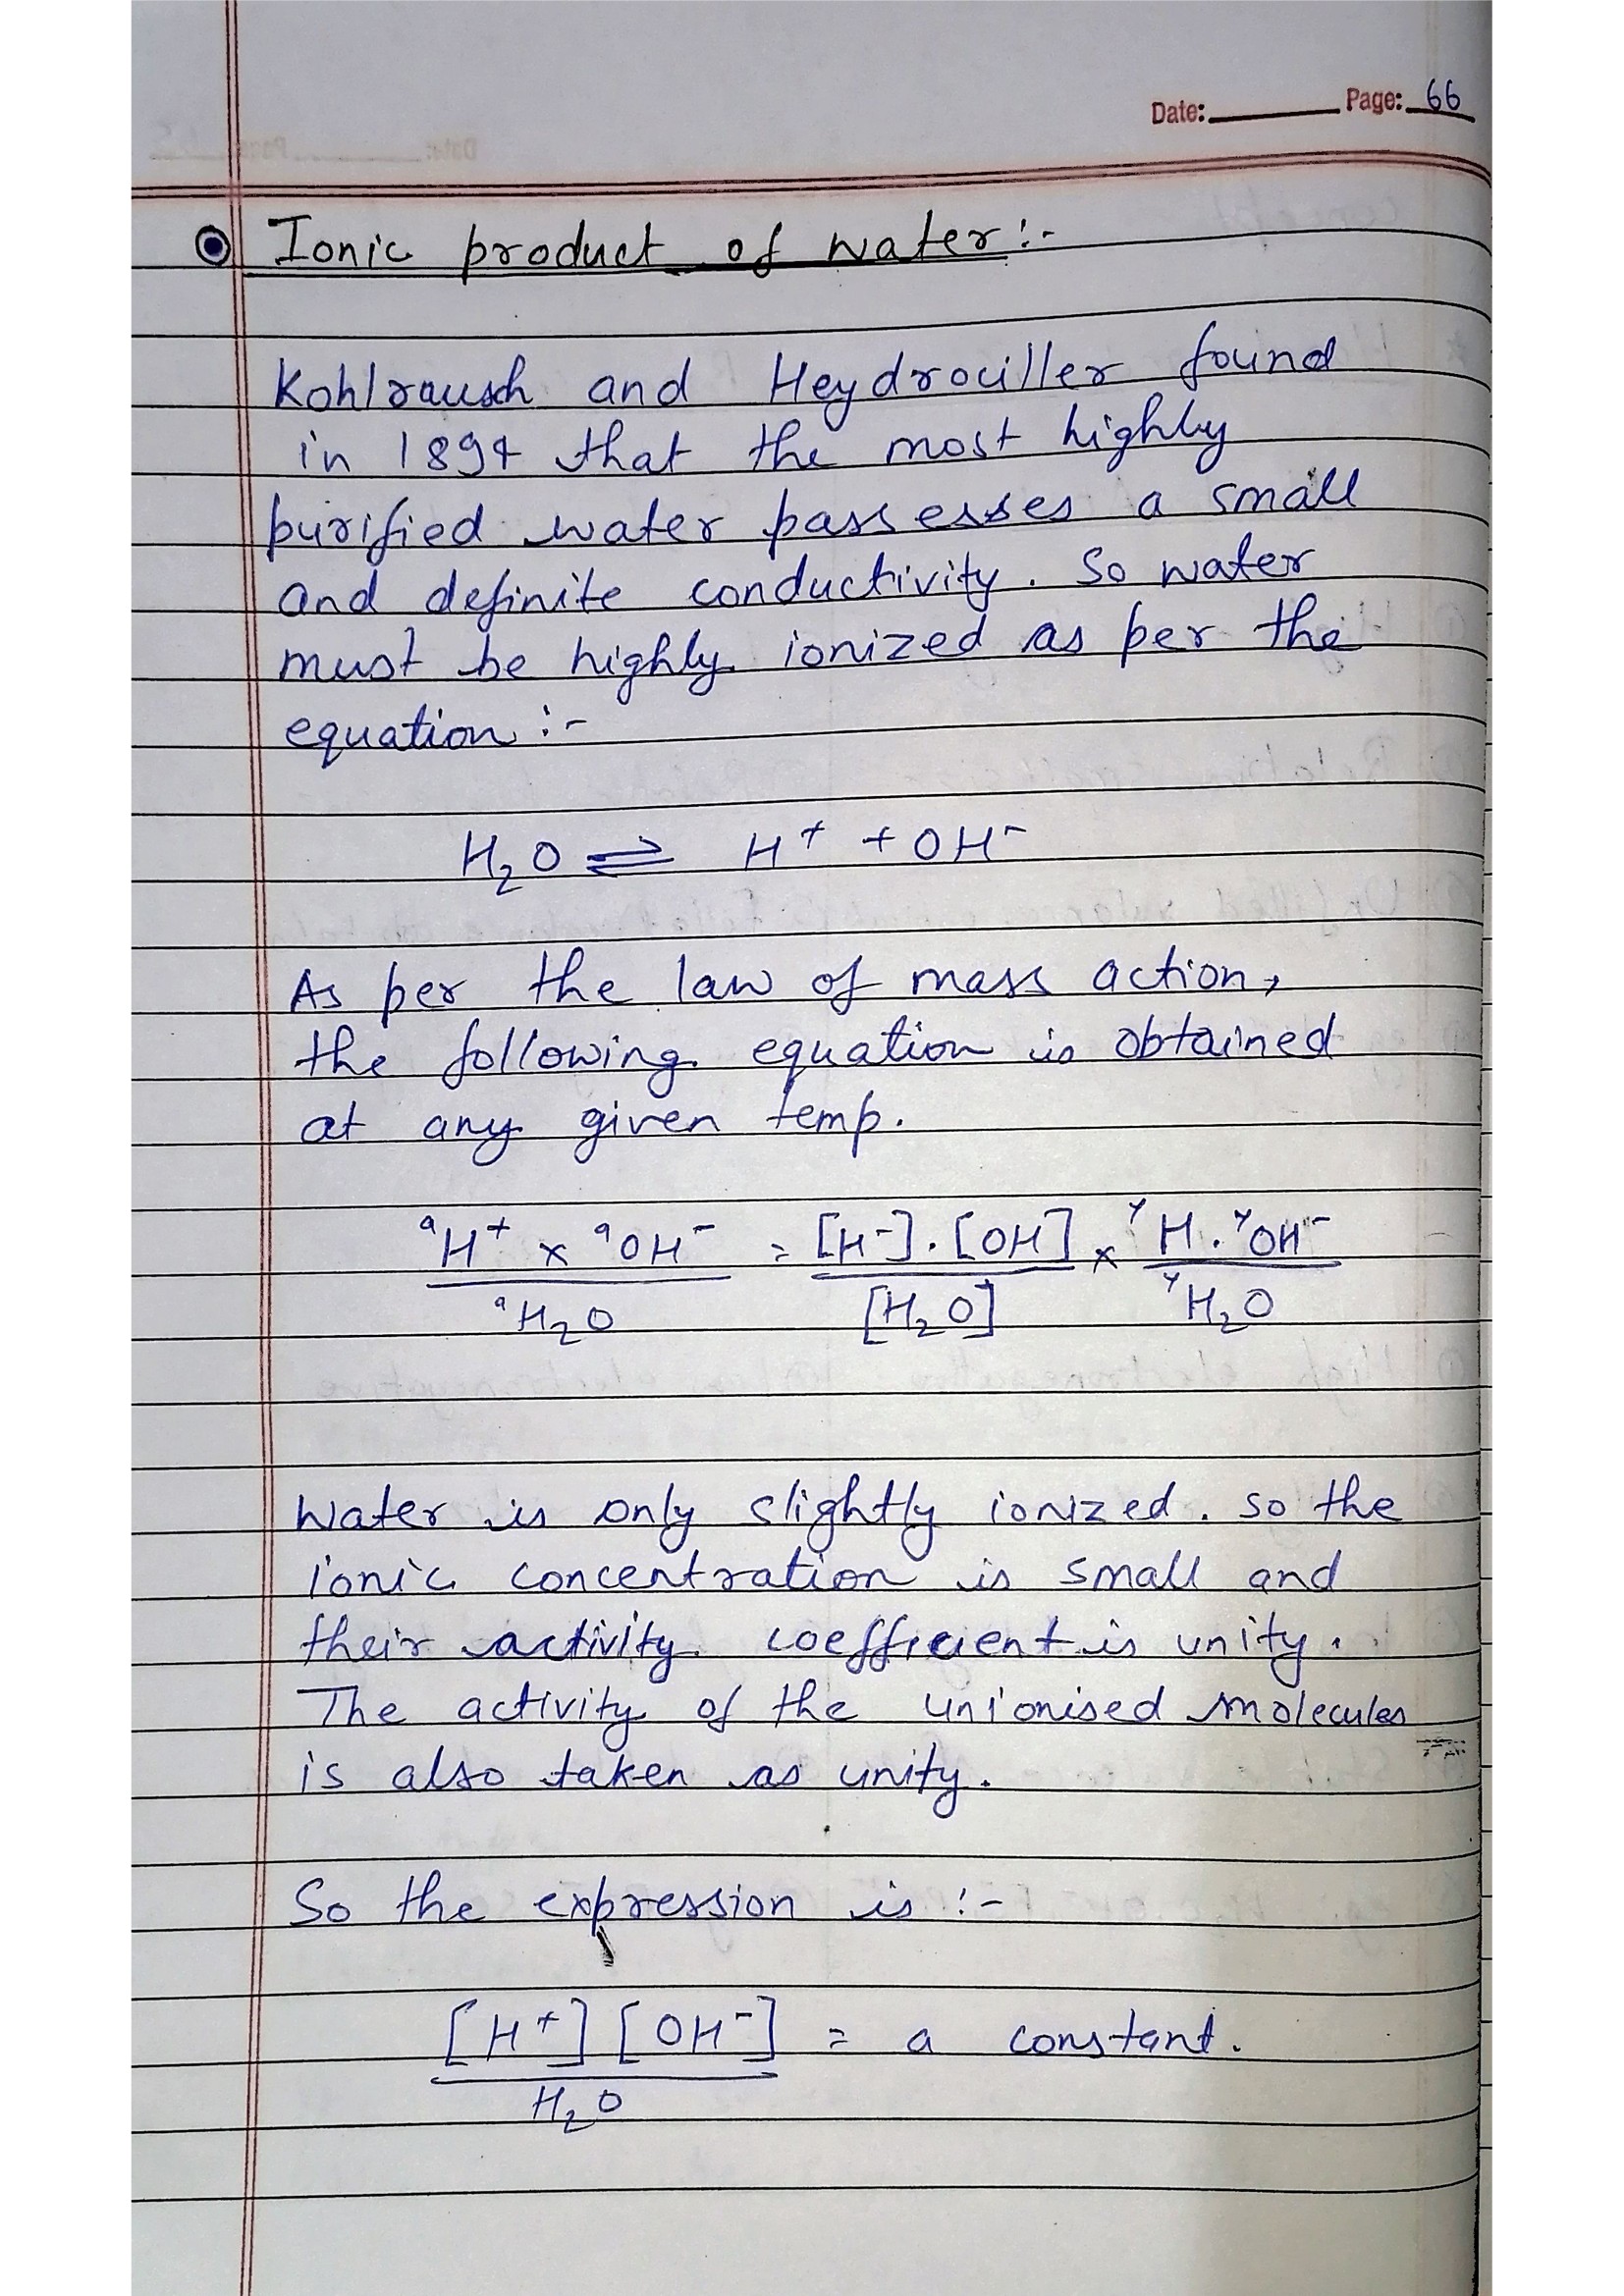 Date: Page: 66
Ionic product of water:-
Kohlrausch and Heydrociller found
in 1894 that the most highly
purified water passesses a small
and definite conductivity. So water
must be highly ionized as per the
equation :-
H₂O ⇌ H⁺ + OH⁻
As per the law of mass action,
the following equation is obtained
at any given temp.
ᵃH⁺ × ᵃOH⁻ = [H⁻].[OH] × ᵞH.ᵞOH⁻
ᵃH₂O [H₂O] ᵞH₂O
Water is only slightly ionized. So the
ionic concentration is small and
their activity coefficient is unity.
The activity of the unionised molecules
is also taken as unity.
So the expression is :-
[H⁺] [OH⁻] = a constant.
H₂O